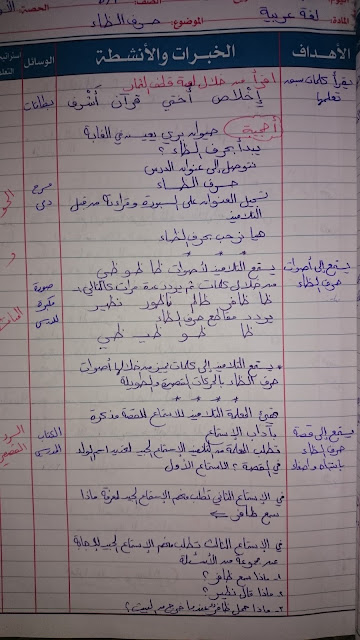 المادة: لغة عربية
الموضوع: حرف الظاء
الحصة
الأهداف
الخبرات والأنشطة
الوسائل
يقرأ كلمات سبق تعلمها
اقرأ من خلال لعبة
إخلاص أختي قرآن أشرف
بطاقات
أحجية
حيوان بري يعيش في الغابة
يبدأ بحرف الظاء؟
نتوصل إلى عنوان الدرس
حرف الظاء
تسجيل العنوان على السبورة وقراءته من قبل
التلاميذ
هيا نرحب بحرف الظاء
يستمع إلى أصوات
حرف الظاء
يستمع التلاميذ لأصوات ظا ظو ظي
من خلال كلمات ثم يردد عدة مرات كالتالي:
ظا ظافر ظالم ناظور نظير
يردد مقاطع حرف الظاء
ظا ظو ظي
صورة
مكبرة
للدرس
يستمع التلاميذ إلى كلمات يميز من خلالها أصوات
حرف الظاء بالحركات القصيرة والطويلة
يستمع إلى قصة
حرف الظاء
بانتباه وإصغاء
تهيئ المعلمة التلاميذ للاستماع للقصة مذكرة
بآداب الاستماع
تطلب المعلمة من التلاميذ الاستماع الجيد لتحديد اسم الولد
في القصة؟ الاستماع الأول
الكتاب
المدرسي
السرد
القصصي
في الاستماع الثاني تطلب منهم الاستماع الجيد لمعرفة ماذا
سمع ظافر؟
في الاستماع الثالث تطلب منهم الاستماع الجيد للإجابة
عن مجموعة من الأسئلة
١- ماذا سمع ظافر؟
٢- ماذا قال نظير؟
٣- ماذا حمل ظافر عندما خرج من البيت؟